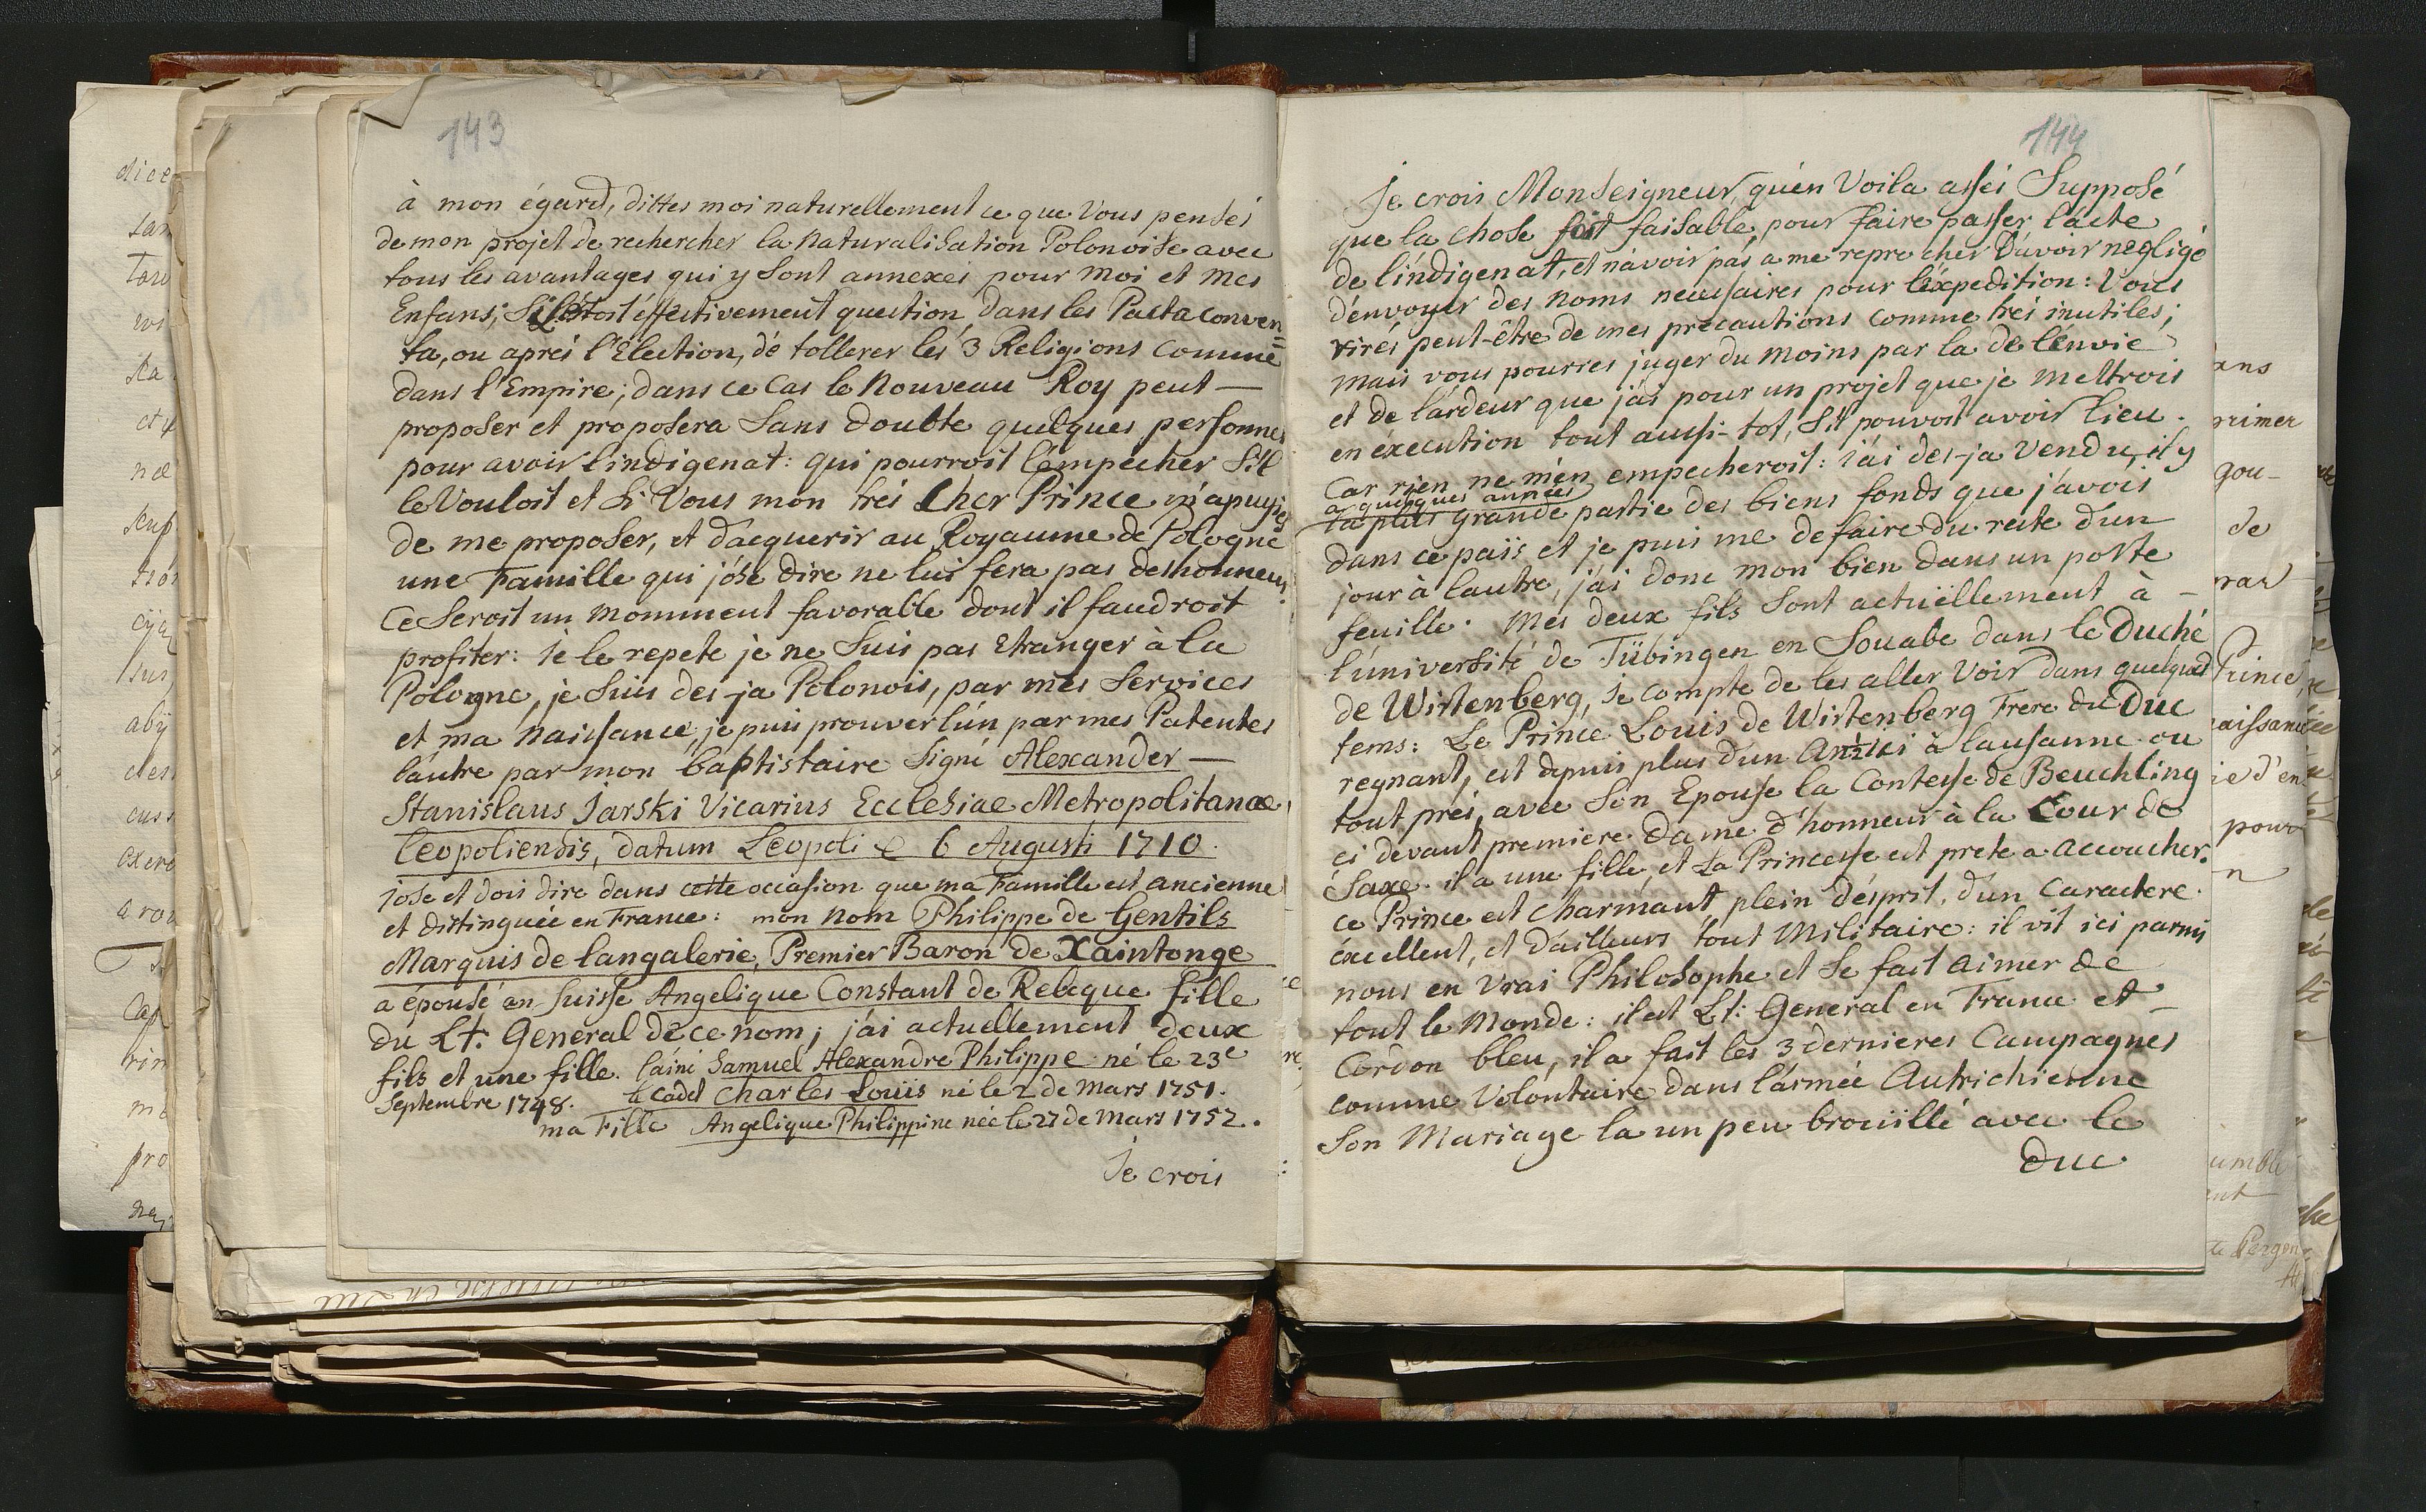 143
à mon égard, dittes moi naturellement ce que Vous pensés
de mon projet de rechercher la Naturalisation Polonoise avec
tous les avantages qui y sont annexés pour moi et mes
Enfans; S'il étoit éffectivement question, dans les Pacta conven=
ta, ou aprés l'Election, de tollerer les 3 Religions comme
dans l'Empire; dans ce Cas le Nouveau Roy peut —
proposer et proposera Sans doubte quelques personnes
pour avoir l'indigenat: qui pourroit l'empecher s'il
le Vouloit et Si Vous mon trés Cher Prince m'apuyiés
de me proposer, et d'acquerir au Royaume de Pologne
une Famille qui j'ose dire ne lui fera pas deshonneur.
Ce Seroit un momment favorable dont il faudroit
profiter: je le repete je ne Suis pas Etranger à la
Pologne, je Suis des-ja Polonois, par mes Services
et ma Naissance, je puis prouver l'un par mes Patentes
l'autre par mon baptistaire Signé Alexander —
Stanislaus Jarski Vicarius Ecclesiae Metropolitanae
Leopoliensis, datum Leopoli e 6 Augusti 1710.
j'ose et dois dire dans cette occasion que ma Famille est ancienne
et distinguée en France: mon nom Philippe de Gentils
Marquis de Langalerie, Premier Baron de Xaintonge
a épousé en Suisse Angelique Constant de Rebeque fille
du Lt. General de ce nom; j'ai actuellement deux
fils et une fille. l'ainé Samuel Alexandre Philippe né le 23e
Septembre 1748. le Cadet Charles Louis né le 2 de Mars 1751.
ma Fille Angelique Philippine née le 27 de Mars 1752.
Je crois
144
Je crois Monseigneur, qu'en Voila assés Supposé
que la chose soit faisable, pour faire passer l'acte
de l'indigenat, et n'avoir pas a me reprocher D'avoir negligé
d'envoyer des noms necessaires pour l'éxpedition: Vous
rirés peut-être de mes précautions comme trés inutiles;
mais vous pourres juger du moins par la de l'énvie
et de l'ardeur que j'ai pour un projet que je mettrois
en éxecution tout aussi-tot, s'il pouvoit avoir lieu.
Car rien ne m'en empecheroit: j'ai des-ja Vendu, il y
a quelques années
la plus grande partie des biens fonds que j'avois
dans ce païs et je puis me defaire du reste d'un
jour à l'autre, j'ai donc mon bien dans un porte
feuille. Mes deux fils Sont actuëllement à —
l'université de Tübingen en Souabe dans le Duché
de Wirtenberg, Je compte de les aller Voir dans quelques
tems: Le Prince Louis de Wirtenberg Frere du Duc
regnant, est depuis plus d'un An½ ici à Lausanne ou
tout prés, avec Son Epouse la Contesse de Beuchling
ci devant premiere Dame d'honneur à la Cour de
Saxe. il a une fille, et La Princesse est prete a accoucher.
ce Prince est charmant, plein d'ésprit, d'un Caractere
éxcellent, et d'ailleurs tout Militaire: il vit ici parmi
nous en Vrai Philosophe et Se fait aimer de
tout le Monde: il est Lt: General en France et —
Cordon bleu, il a fait les 3 dernieres Campagnes
comme Volontaire dans l'armée Autrichienne
Son Mariage l'a un peu broüillé avec le
Duc